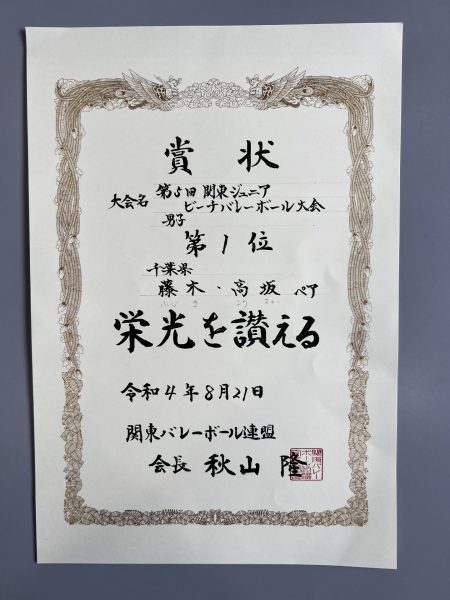 賞状
大会名 第5回 関東ジュニア
ビーチバレーボール大会
男子
第1位
千葉県
藤木・高坂 ペア
栄光を讃える
令和4年8月21日
関東バレーボール連盟
会長 秋山 隆